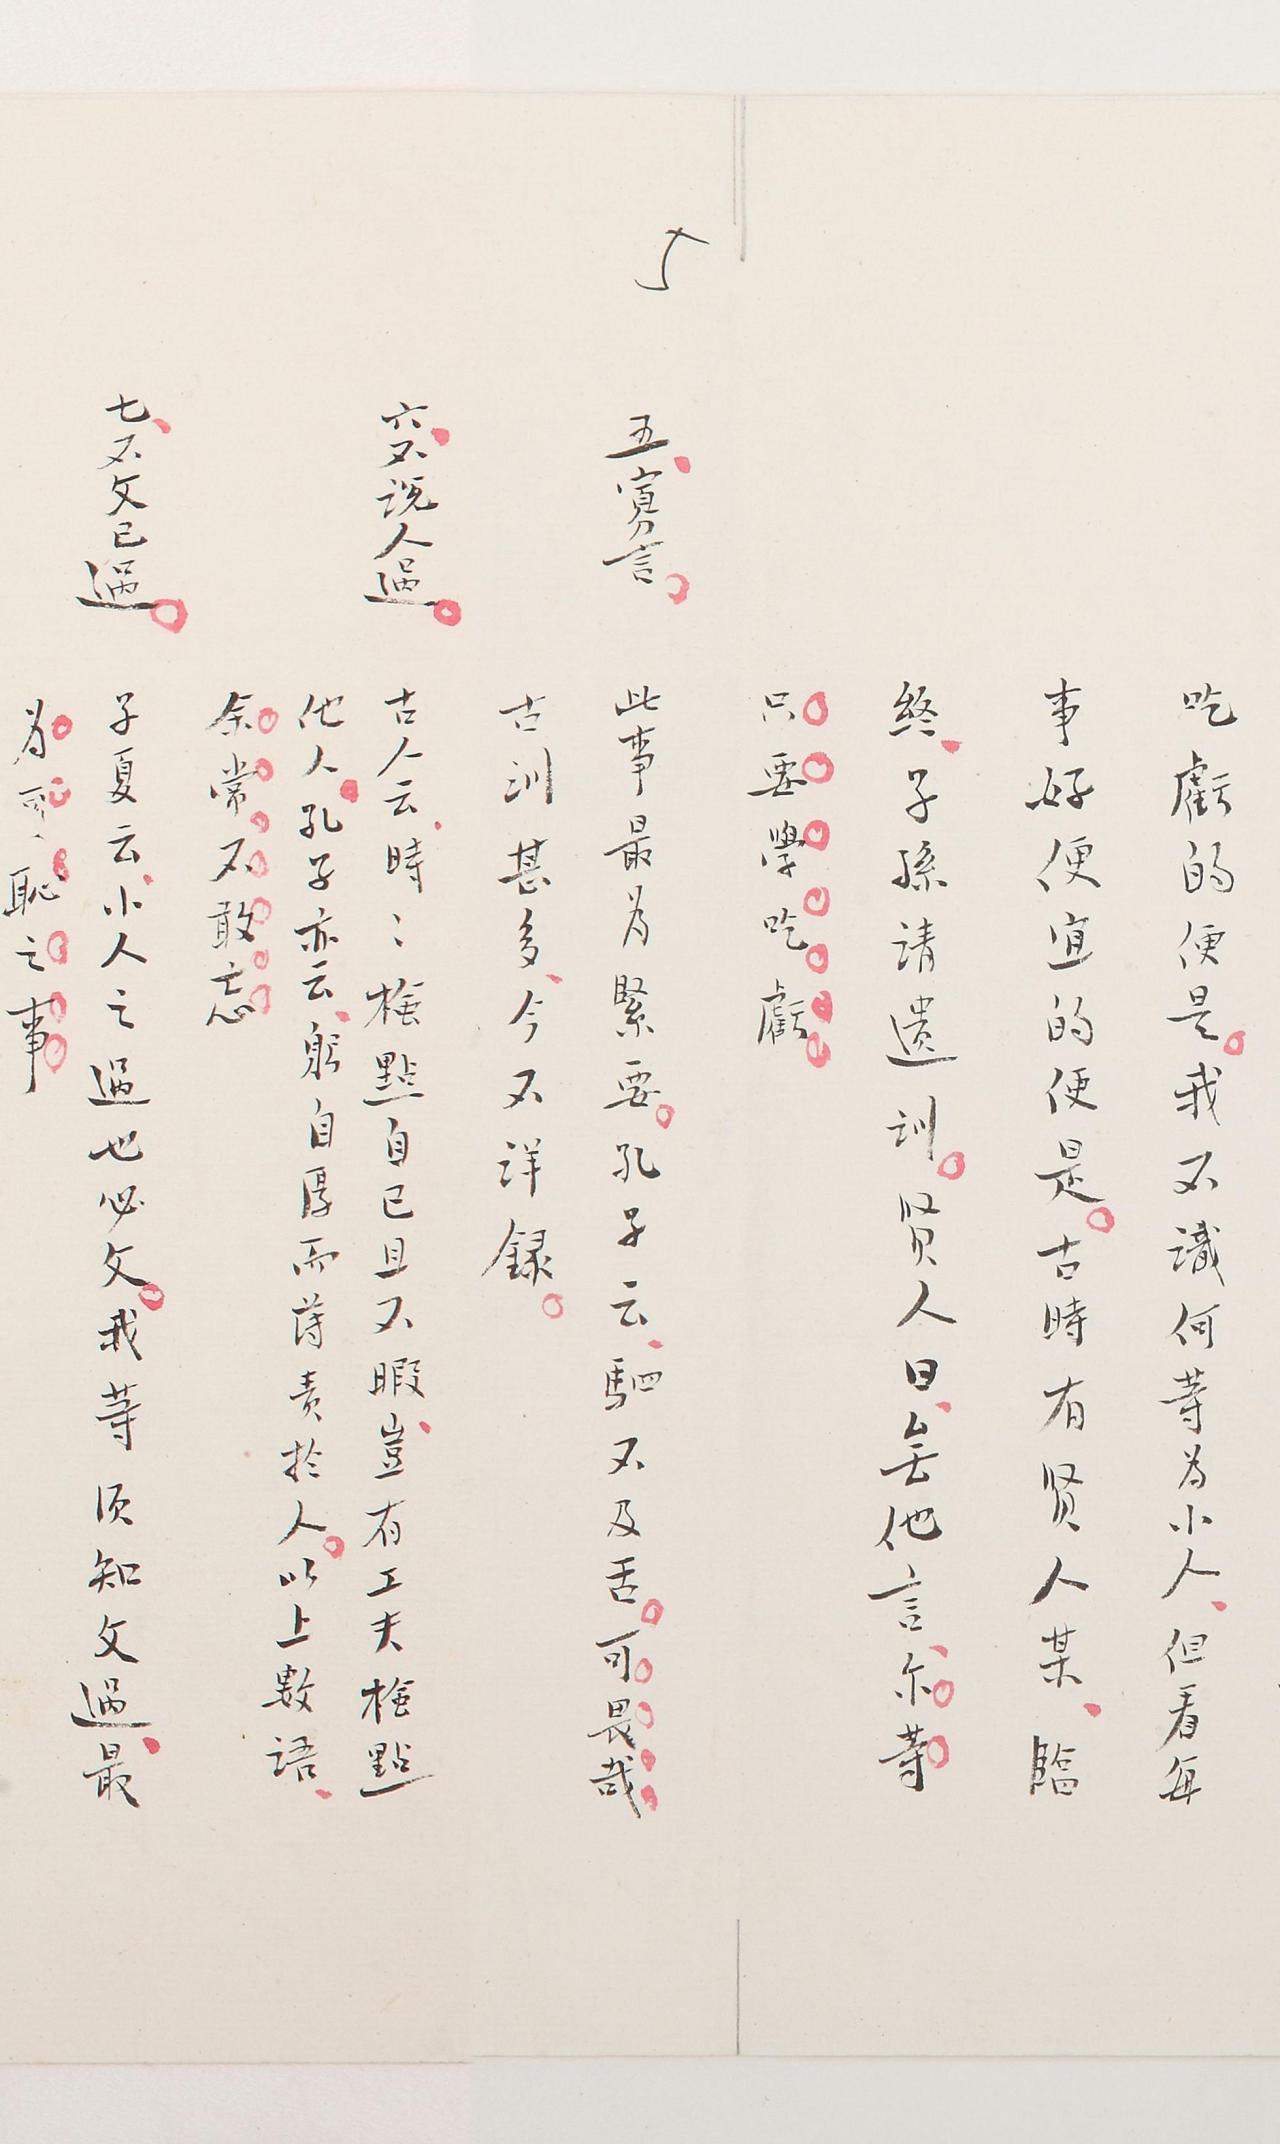 吃虧的便是。我不識何等為小人、但看每
事好便宜的便是。古時有賢人某、臨
終、子孫請遺訓。賢人曰、無他言、尔等
只要學吃虧
五、寡言。
此事最為緊要。孔子云、駟不及舌。可畏哉
古訓甚多、今不詳錄。
六、不說人過。
古人云、時〻檢點自己且不暇、豈有工夫檢點
他人。孔子亦云、躬自厚而薄責於人。以上數語、
余常不敢忘
七、不文己過。
子夏云、小人之過也必文。我等須知文過、最
為可恥之事